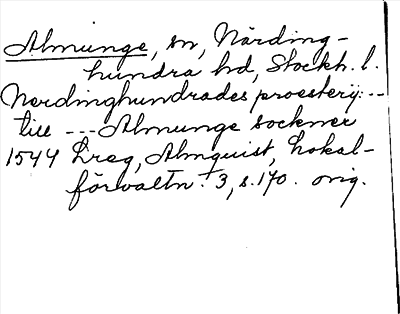 Almunge, sn, Närding-
hundra hd, Stockh. l.
Nerdinghundrades prosterij ---
till --- Almunge sockner
1544 Åreg, Almquist, Lokal-
förvaltn. 3, s. 170. orig.